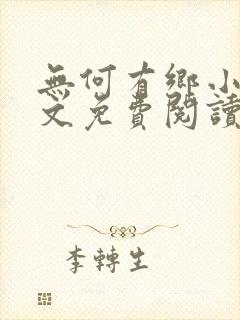 無何有鄉小
文免費閱讀
李轉生